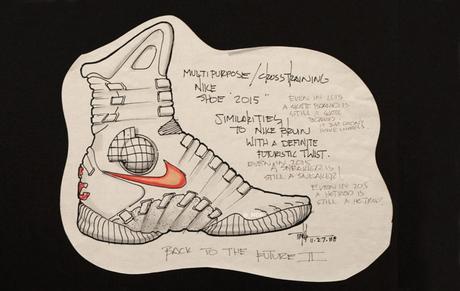 MULTIPURPOSE/CROSSTRAINING
NIKE
SHOE "2015"
SIMILARITIES
TO NIKE BRUIN
WITH A DEFINITE
FUTURISTIC TWIST.
EVEN IN 2015
A SKATE BOARD IS
STILL A SKATE
BOARD
IT JUST DOESN'T
HAVE WHEELS
EVEN IN 2015
A SNEAKER IS
STILL A SNEAKER!
EVEN IN 2015
A HOTROD IS
STILL A HOTROD.
11·27·88
BACK TO THE FUTURE II